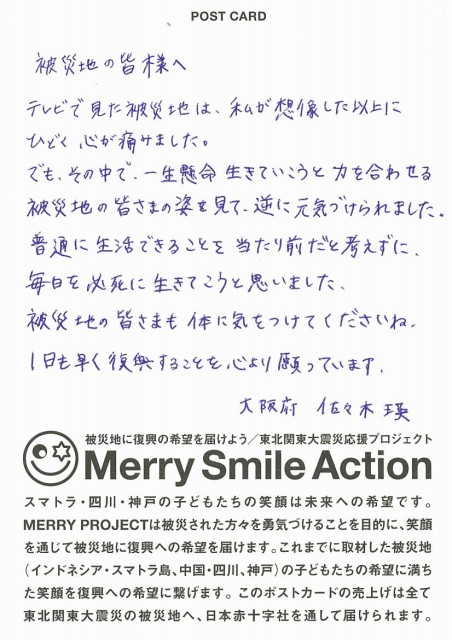 POST CARD
被災地の皆様へ
テレビで見た被災地は、私が想像した以上に
ひどく心が痛みました。
でも、その中で、一生懸命生きていこうと力を合わせる
被災地の皆さまの姿を見て、逆に元気づけられました。
普通に生活できることを当たり前だと考えずに、
毎日を必死に生きてこうと思いました、
被災地の皆さまも体に気をつけてくださいね。
1日も早く復興することを心より願っています。
大阪府 佐々木 瑛
被災地に復興の希望を届けよう／東北関東大震災応援プロジェクト
Merry Smile Action
スマトラ・四川・神戸の子どもたちの笑顔は未来への希望です。
MERRY PROJECTは被災された方々を勇気づけることを目的に、笑顔
を通じて被災地に復興への希望を届けます。これまでに取材した被災地
（インドネシア・スマトラ島、中国・四川、神戸）の子どもたちの希望に満ち
た笑顔を復興への希望に繋げます。このポストカードの売上げは全て
東北関東大震災の被災地へ、日本赤十字社を通して届けられます。